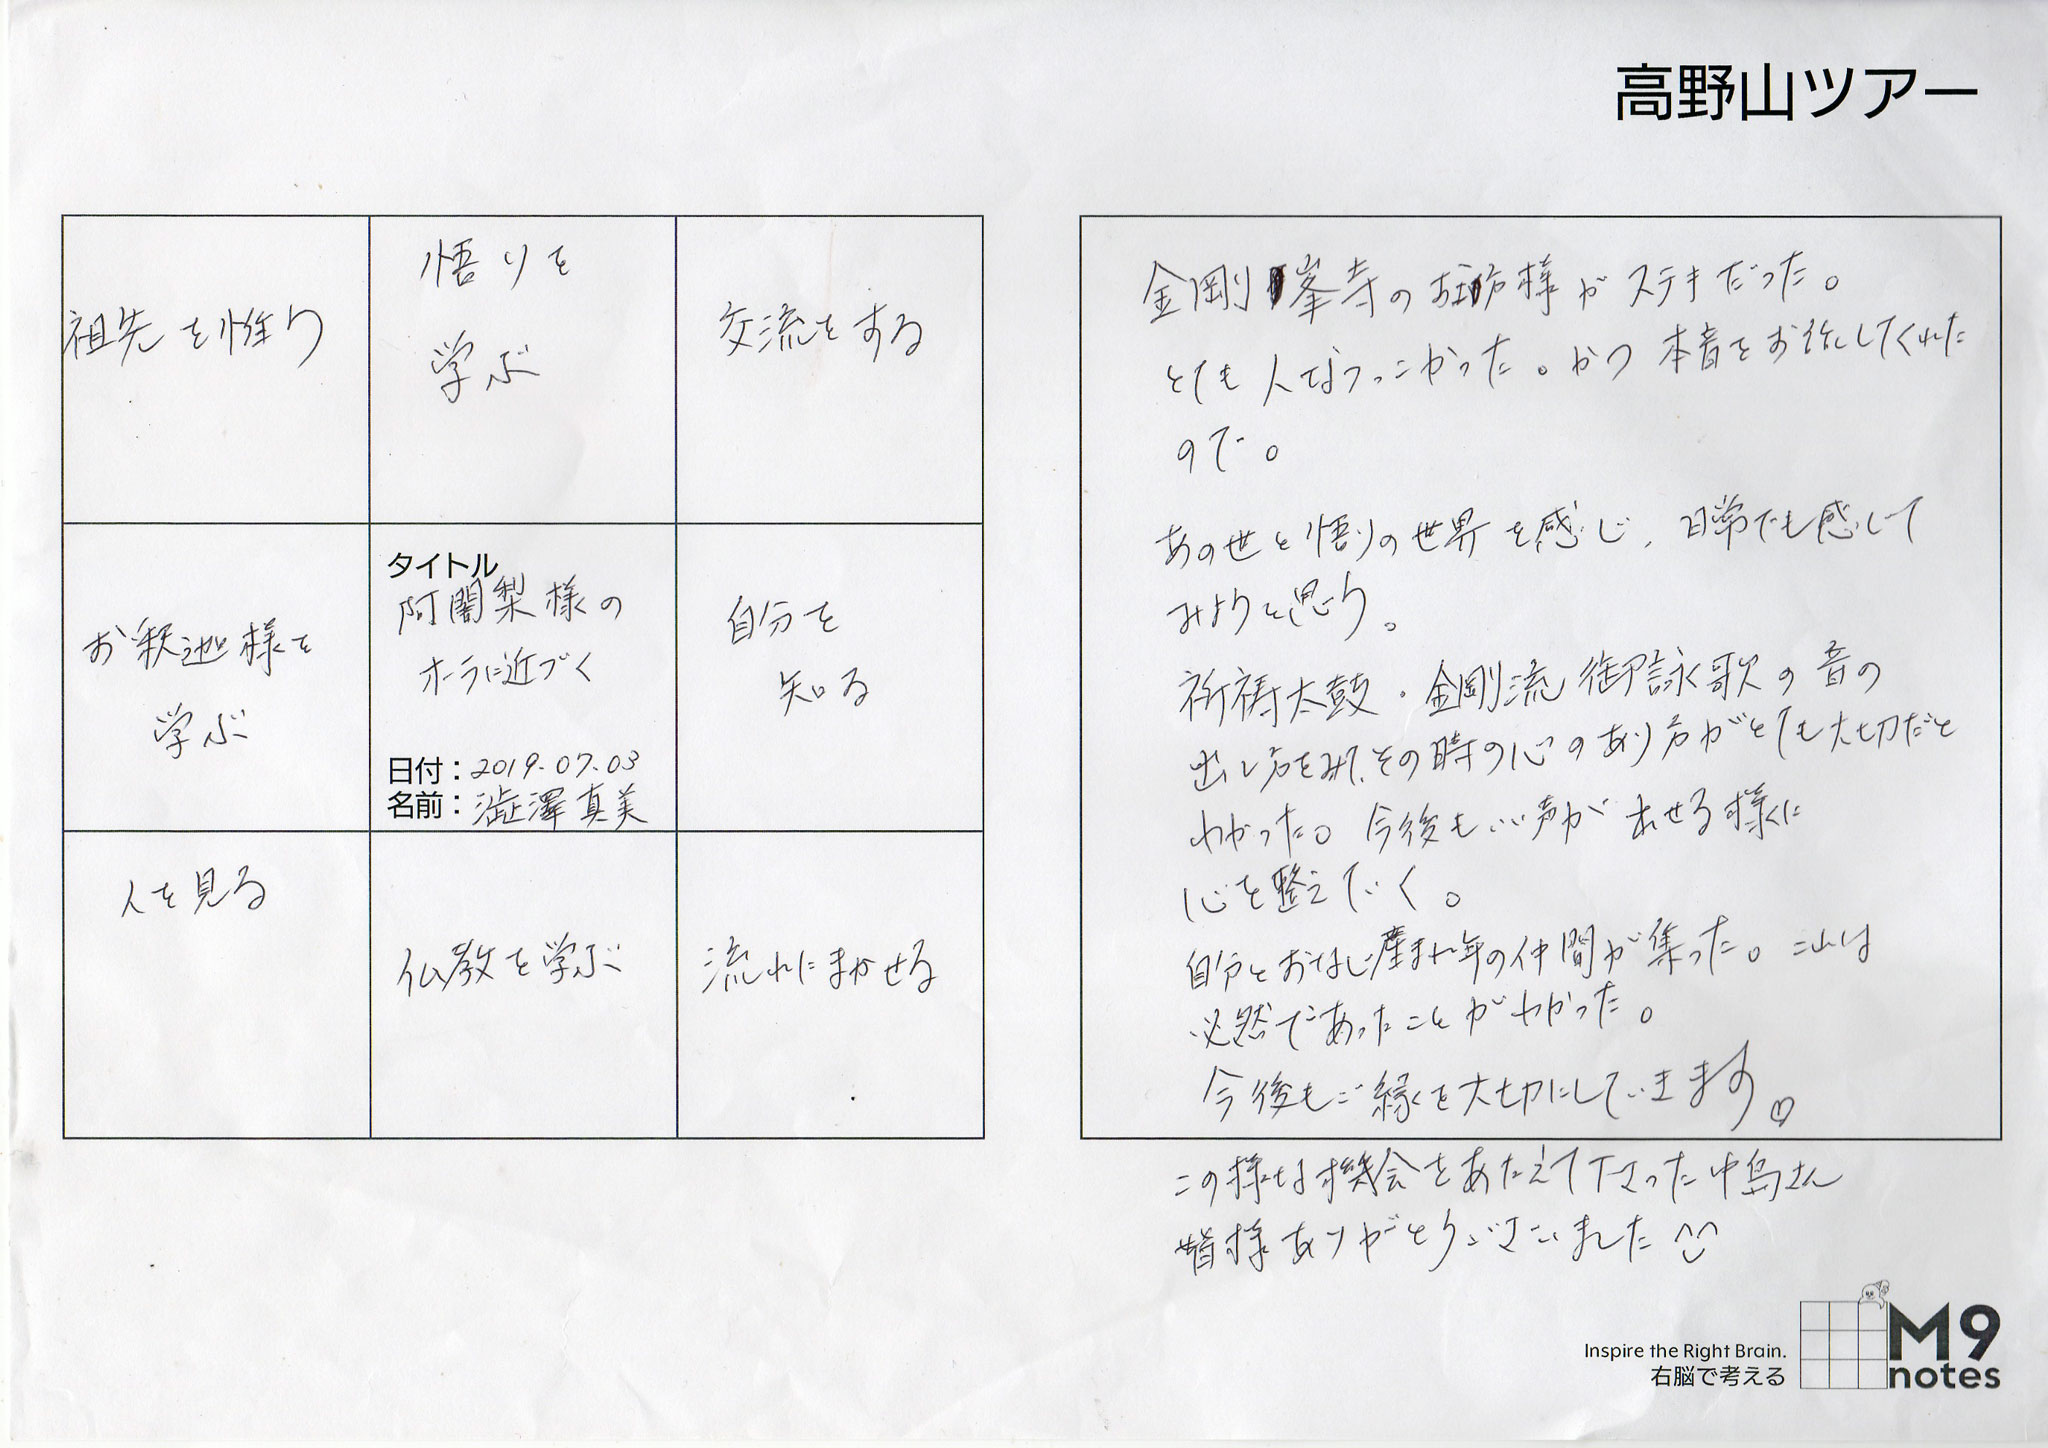 高野山ツアー
祖先を惟う
悟りを
学ぶ
交流をする
お釈迦様を
学ぶ
タイトル
阿闍梨様の
オーラに近づく
日付：2019.07.03
名前：澁澤真美
自分を
知る
人を見る
仏教を学ぶ
流れにまかせる
金剛峯寺のお坊様がステキだった。
とても人なつっこかった。かつ本音をお話してくれた
ので。
あの世と悟りの世界を感じ、日常でも感じて
みようと思う。
祈祷太鼓・金剛流御詠歌の音の
出し方をみて、その時の心のあり方がとても大切だと
わかった。今後もいい声が出せる様に
心を整えていく。
自分とおなじ産まれ年の仲間が集った。これは
必然であったことがわかった。
今後もご縁を大切にしていきます♡
この様な機会をあたえて下さった中島さん
皆様ありがとうございました
Inspire the Right Brain.
右脳で考える
M9
notes